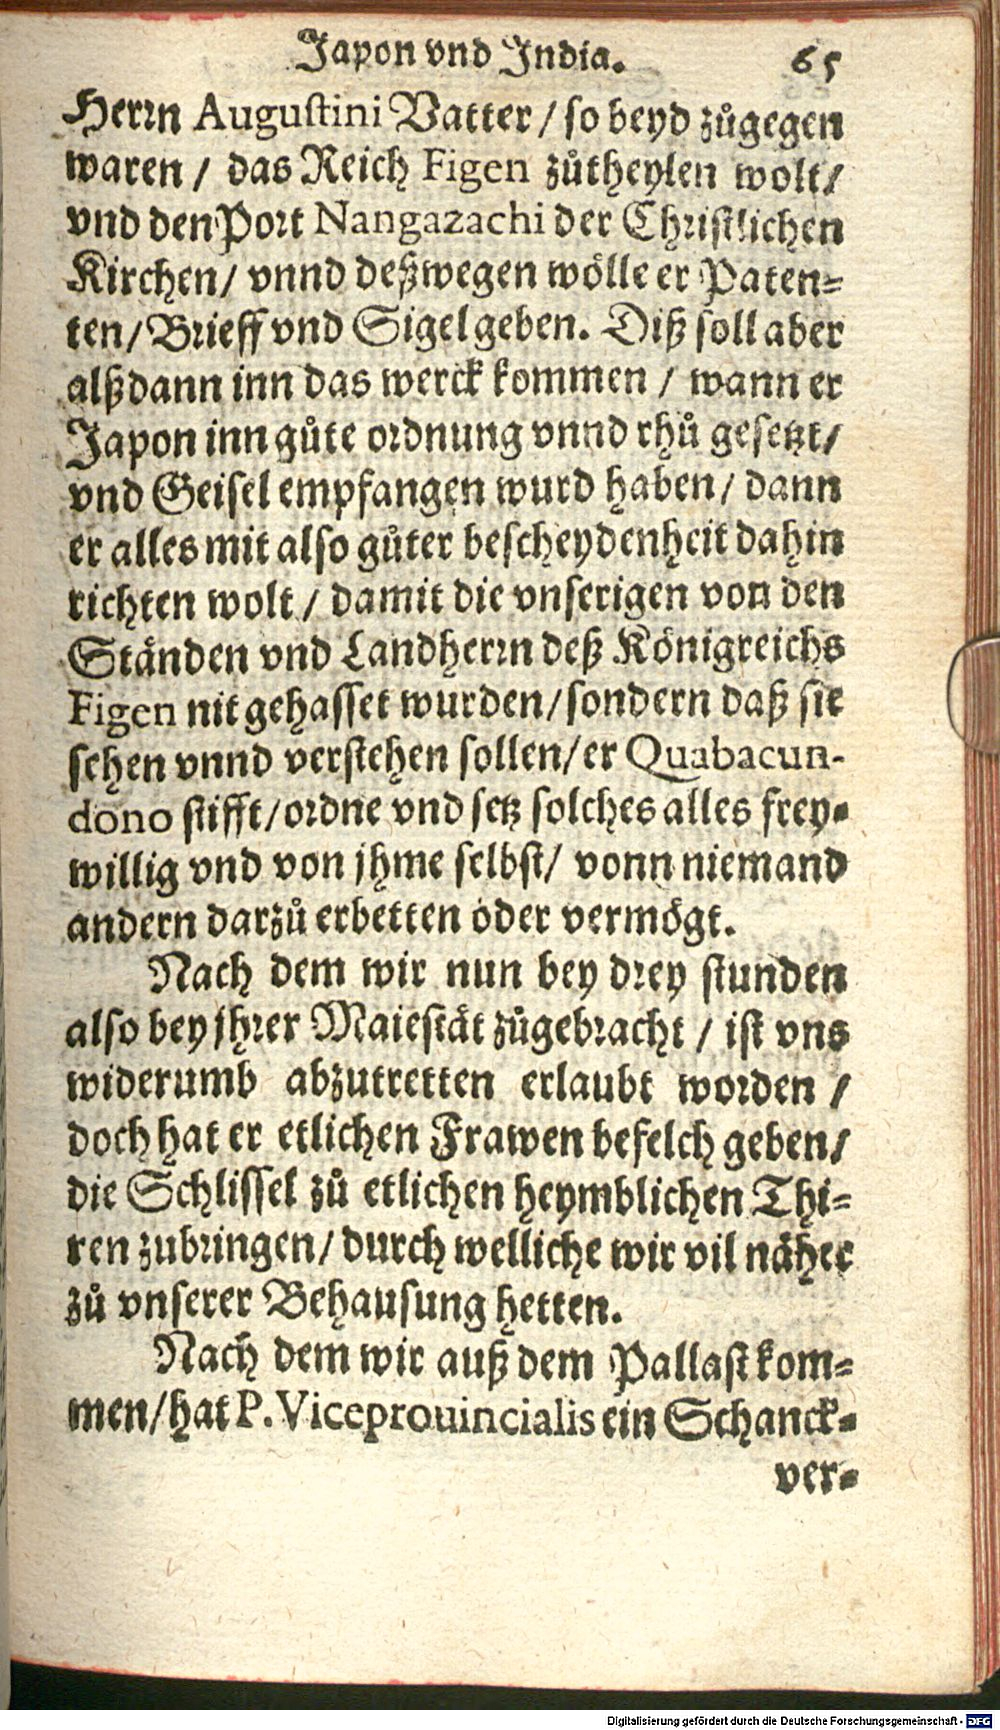 Japon vnd India. 65
Herrn Augustini Vatter / so beyd zůgegen
waren / das Reich Figen zůtheylen wolt /
vnd den Port Nangazachi der Christlichen
Kirchen / vnnd deßwegen wölle er Paten-
ten / Brieff vnd Sigel geben. Diß soll aber
alßdann inn das werck kommen / wann er
Japon inn gůte ordnung vnnd rhů gesetzt /
vnd Geisel empfangen wurd haben / dann
er alles mit also gůter bescheydenheit dahin
richten wolt / damit die vnserigen von den
Ständen vnd Landherrn deß Königreichs
Figen nit gehasset wurden / sondern daß sie
sehen vnnd verstehen sollen / er Quabacun-
dono stifft / ordne vnd setz solches alles frey-
willig vnd von jhme selbst / vonn niemand
andern darzů erbetten oder vermögt.
Nach dem wir nun bey drey stunden
also bey jhrer Maiestät zůgebracht / ist vns
widerumb abzutretten erlaubt worden /
doch hat er etlichen Frawen befelch geben /
die Schlissel zů etlichen heymblichen Thi-
ren zubringen / durch welliche wir vil näher
zů vnserer Behausung hetten.
Nach dem wir auß dem Pallast kom-
men / hat P. Viceprouincialis ein Schanck-
ver-
Digitalisierung gefördert durch die Deutsche Forschungsgemeinschaft - DFG